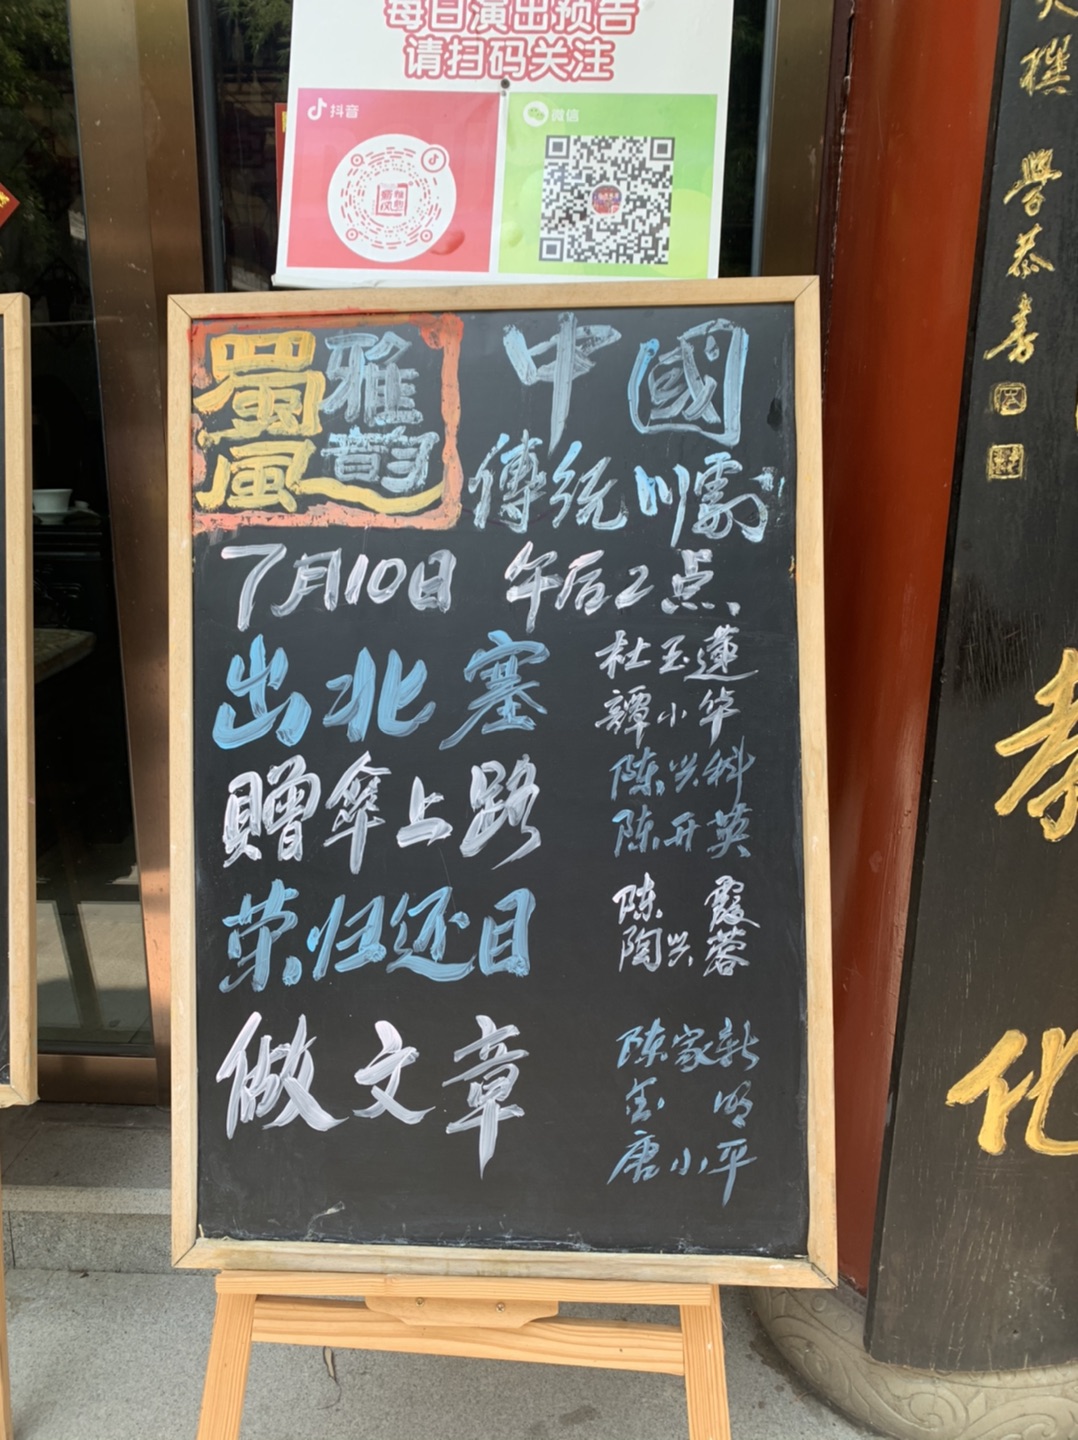 每日演出预告
请扫码关注
抖音
微信
蜀風
雅韵
中國
傳統川劇
7月10日 午后2点
出北塞
杜玉蓮
譚小华
赠傘上路
陈兴科
陈开英
荣归还目
陈霞
陶兴蓉
做文章
陈家新
唐小平
撰
學恭書
教
化